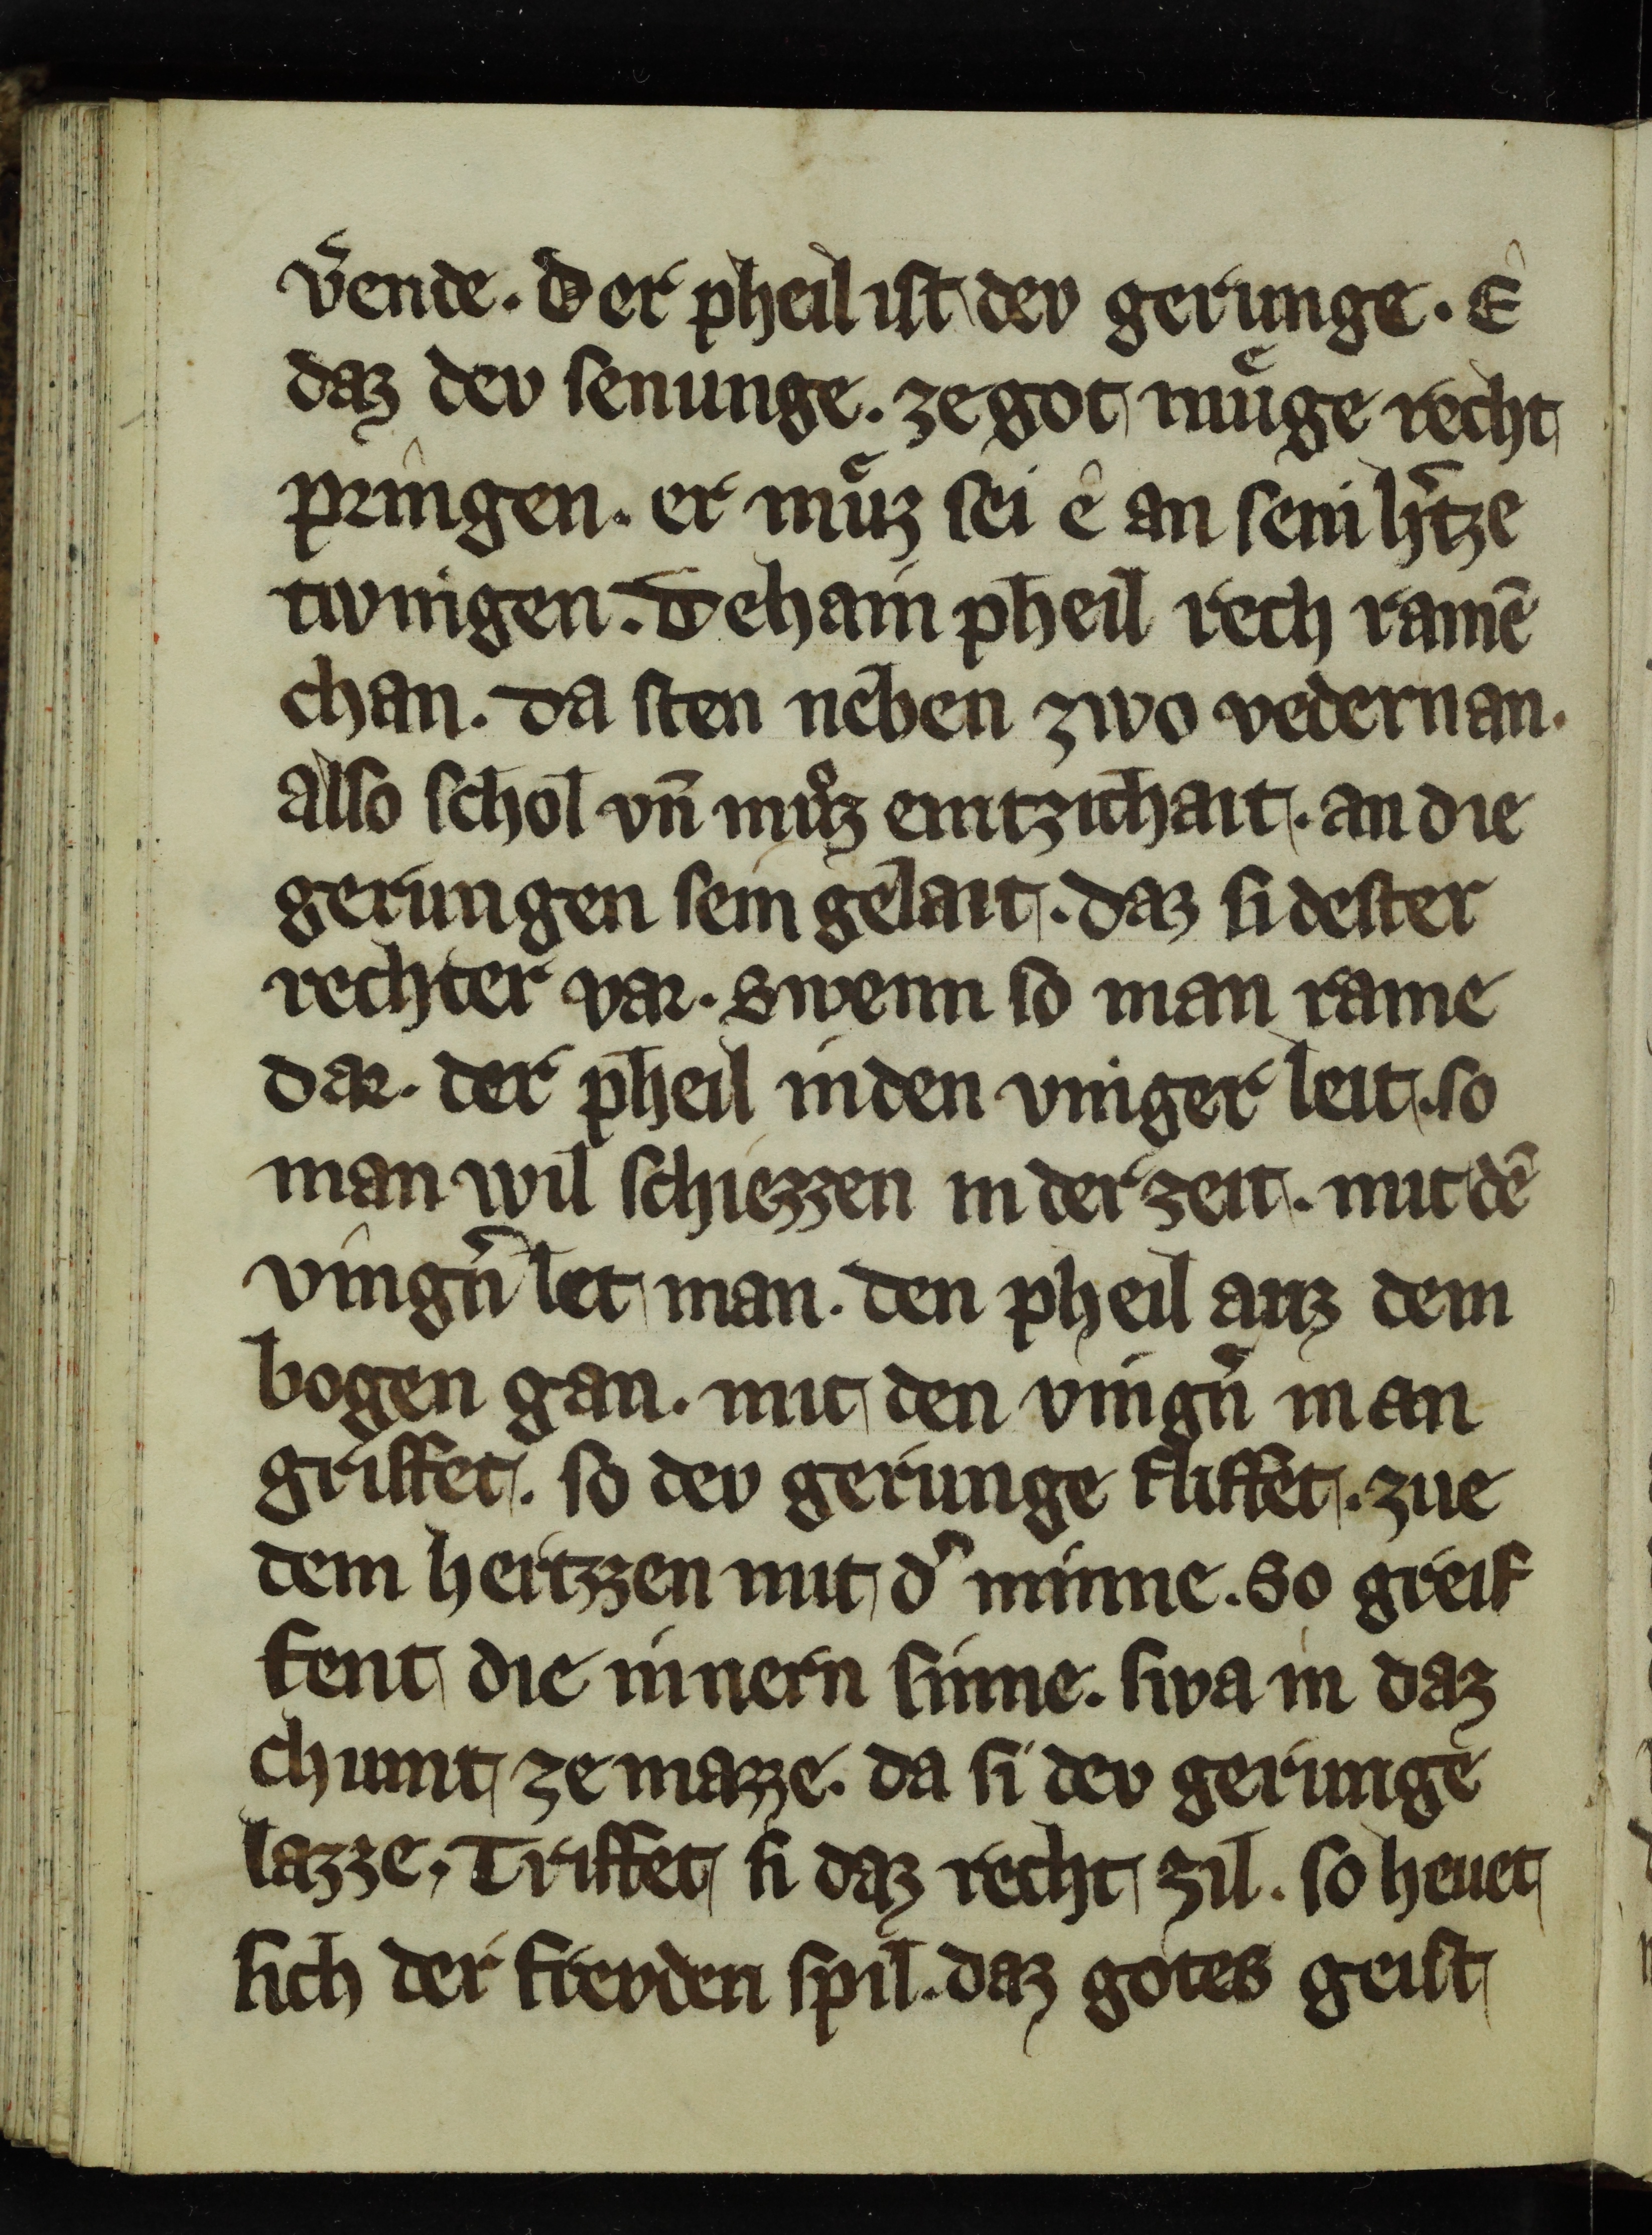 v̄ende. Der pheil ist dev gerunge. Ê
daz dev senunge. ze got muͤge recht
pringen. er muͤz sei ê an sein h̄tze
twingen. Dehain pheil rech ramē
chan. da sten neben zwo vedern an.
also schol vn̄ muͦz emtzichait. an die
gerungen sein gelait. daz si dester
rechter var. Swenn so man rame
dar. der pheil in den vinger leit. so
man wil schiezzen in der zeit. mit dē
vingn̄ let man. den pheil auz dem
bogen gan. mit den vingn̄ man
griffet. so dev gerunge sliffet. zue
dem hertzzen mit d᾽ minne. So greif
fent die innern sinne. swa in daz
chumt ze mazze. da si dev gerunge
lazze. Triffet si daz recht zil. so heuet
sich der frevden spil. daz gotes geist